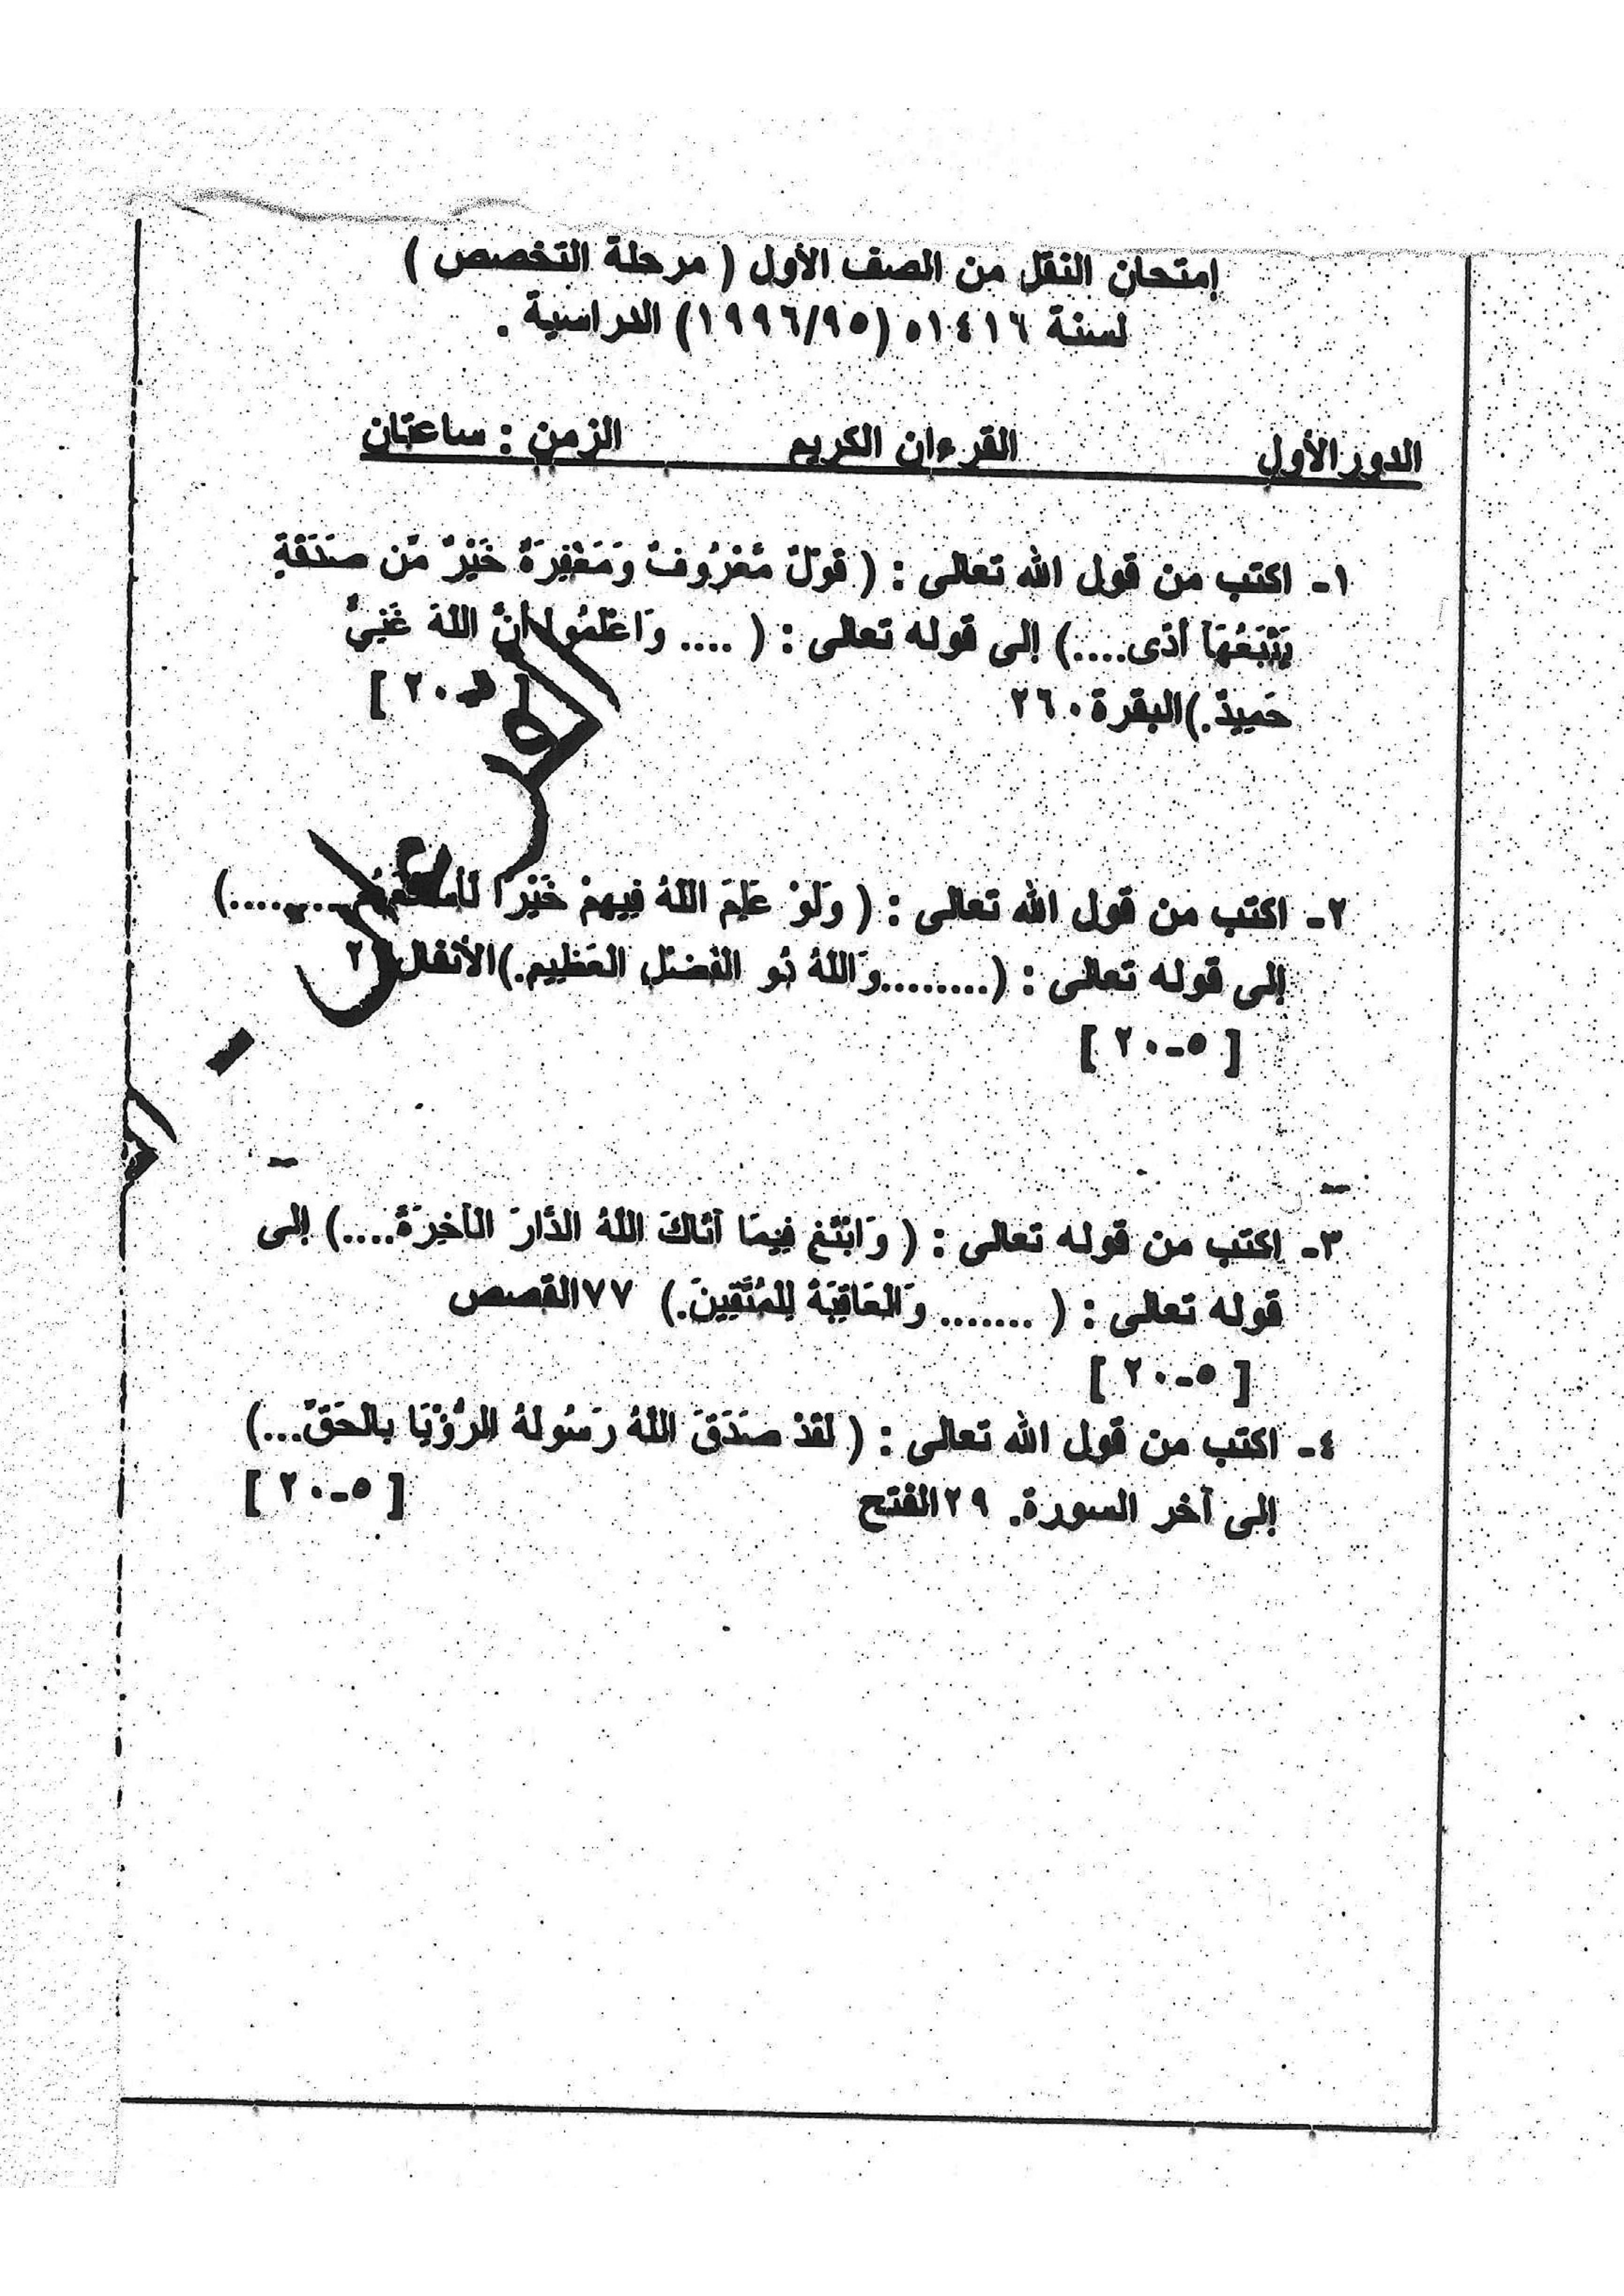 إمتحان النقل من الصف الأول ( مرحلة التخصص )
لسنة ١٤١٦ه (١٩٩٦/٩٥) الدراسية .
الدور الأول القرءان الكريم الزمن : ساعتان
١- اكتب من قول الله تعالى : ( قَوْلٌ مَّعْرُوفٌ وَمَغْفِرَةٌ خَيْرٌ مِّن صَدَقَةٍ
يَتْبَعُهَا أَذًى....) إلى قوله تعالى : ( .... وَاعْلَمُوا أَنَّ اللَّهَ غَنِيٌّ
حَمِيدٌ.)البقرة ٢٦٠ [ ٢٠ ]
٢- اكتب من قول الله تعالى : ( وَلَوْ عَلِمَ اللَّهُ فِيهِمْ خَيْرًا ........)
إلى قوله تعالى : (........وَاللَّهُ ذُو الْفَضْلِ الْعَظِيمِ.)الأنفال
[ ٥-٢٠ ]
٣- اكتب من قوله تعالى : ( وَابْتَغِ فِيمَا آتَاكَ اللَّهُ الدَّارَ الْآخِرَةَ....) إلى
قوله تعالى : ( ....... وَالْعَاقِبَةُ لِلْمُتَّقِينَ.) ٧٧القصص
[ ٥-٢٠ ]
٤- اكتب من قول الله تعالى : ( لَقَدْ صَدَقَ اللَّهُ رَسُولَهُ الرُّؤْيَا بِالْحَقِّ...)
إلى آخر السورة. ٢٩الفتح [ ٥-٢٠ ]